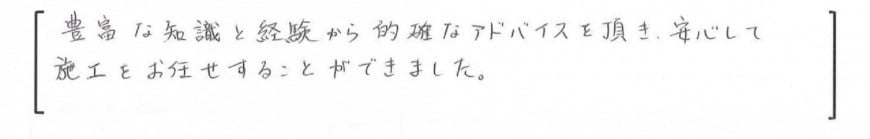 豊富な知識と経験から的確なアドバイスを頂き、安心して
施工をお任せすることができました。